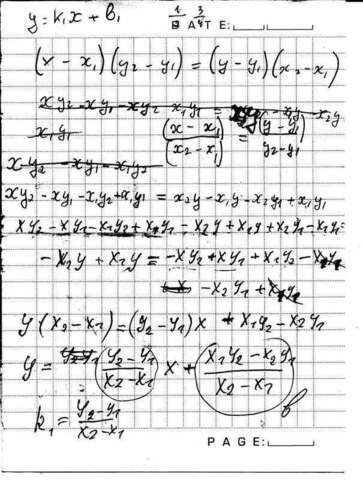 y = k₁x + b₁
DATE:
(x - x₁)(y₂ - y₁) = (y - y₁)(x₂ - x₁)
x₁y₁
(x - x₁)/(x₂ - x₁) = (y - y₁)/(y₂ - y₁)
xy₂ - xy₁ - x₁y₂
xy₂ - xy₁ - x₁y₂ + x₁y₁ = x₂y - x₁y - x₂y₁ + x₁y₁
xy₂ - xy₁ - x₁y₂ + x₁y₁ - x₂y + x₁y + x₂y₁ - x₁y₁ =
- x₂y + x₁y = -xy₂ + xy₁ + x₁y₂ - x₁y₁
- x₂y₁ + x₁y₂
y(x₂ - x₁) = (y₂ - y₁)x + x₁y₂ - x₂y₁
y = (y₂ - y₁)/(x₂ - x₁) x + (x₁y₂ - x₂y₁)/(x₂ - x₁)
b
k₁ = (y₂ - y₁)/(x₂ - x₁)
PAGE: